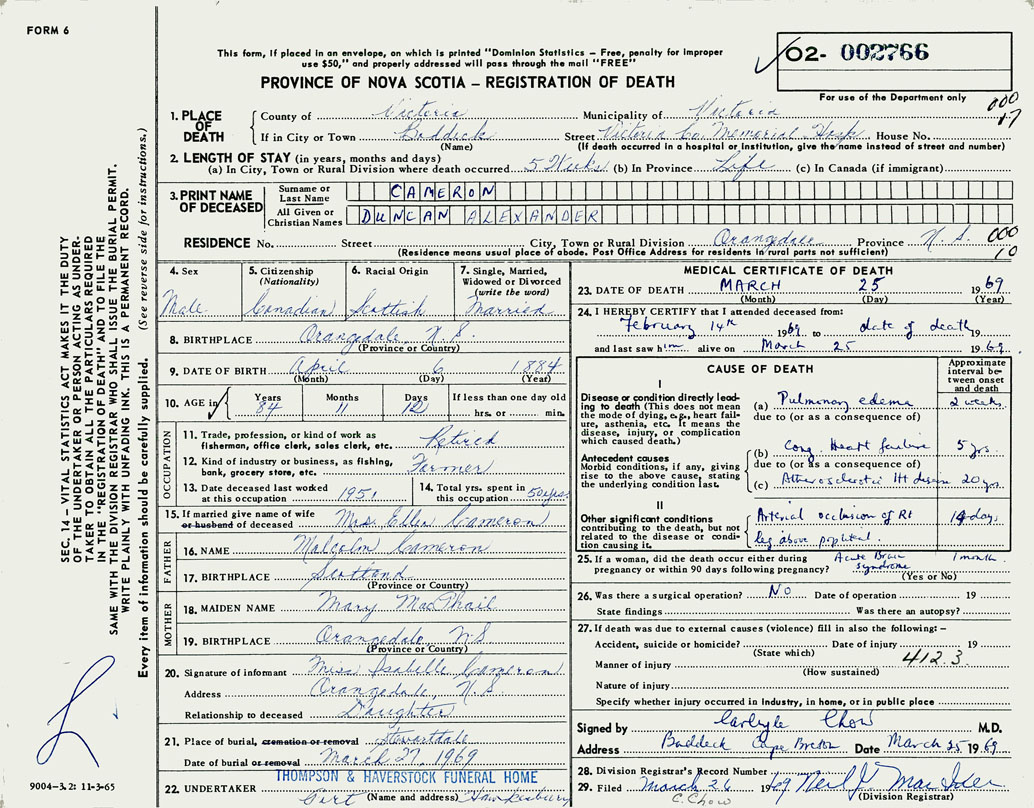 FORM 6
This form, if placed in an envelope, on which is printed "Dominion Statistics – Free, penalty for improper
use $50," and properly addressed will pass through the mail "FREE"
PROVINCE OF NOVA SCOTIA – REGISTRATION OF DEATH
02- 002766
For use of the Department only
000
17
1. PLACE OF DEATH
County of Victoria Municipality of Victoria
If in City or Town Baddeck Street Victoria Co. Memorial Hosp House No.
(Name) (If death occurred in a hospital or institution, give the name instead of street and number)
2. LENGTH OF STAY (in years, months and days)
(a) In City, Town or Rural Division where death occurred 5 Weeks (b) In Province Life (c) In Canada (if immigrant)
3. PRINT NAME OF DECEASED
Surname or Last Name CAMERON
All Given or Christian Names DUNCAN ALEXANDER
RESIDENCE No. Street City, Town or Rural Division Orangedale Province N. S. 000
10
(Residence means usual place of abode. Post Office Address for residents in rural parts not sufficient)
4. Sex
Male
5. Citizenship
(Nationality)
Canadian
6. Racial Origin
Scottish
7. Single, Married,
Widowed or Divorced
(write the word)
Married
8. BIRTHPLACE Orangedale N.S
(Province or Country)
9. DATE OF BIRTH April 6 1884
(Month) (Day) (Year)
10. AGE in Years 84 Months 11 Days 12 If less than one day old
hrs. or min.
OCCUPATION
11. Trade, profession, or kind of work as
fisherman, office clerk, sales clerk, etc. Retired
12. Kind of industry or business, as fishing,
bank, grocery store, etc. Farmer
13. Date deceased last worked
at this occupation 1951
14. Total yrs. spent in
this occupation 50 yrs
15. If married give name of wife
or husband of deceased Mrs. Ellen Cameron
FATHER
16. NAME Malcolm Cameron
17. BIRTHPLACE Scotland
(Province or Country)
MOTHER
18. MAIDEN NAME Mary MacPhail
19. BIRTHPLACE Orangedale N.S
(Province or Country)
20. Signature of informant Miss Isabelle Cameron
Address Orangedale, N.S
Relationship to deceased Daughter
21. Place of burial, cremation or removal Stewartdale
Date of burial or removal March 27, 1969
THOMPSON & HAVERSTOCK FUNERAL HOME
22. UNDERTAKER Port Hawkesbury
(Name and address)
MEDICAL CERTIFICATE OF DEATH
23. DATE OF DEATH MARCH 25 1969
(Month) (Day) (Year)
24. I HEREBY CERTIFY that I attended deceased from:
February 14th 1969 to date of death 19
and last saw him alive on March 25 1969.
CAUSE OF DEATH
Approximate
interval be-
tween onset
and death
I
Disease or condition directly lead-
ing to death (This does not mean
the mode of dying, e.g., heart fail-
ure, asthenia, etc. It means the
disease, injury, or complication
which caused death.)
(a) Pulmonary edema 2 weeks
due to (or as a consequence of)
Antecedent causes
Morbid conditions, if any, giving
rise to the above cause, stating
the underlying condition last.
(b) Cong Heart failure 5 yrs.
due to (or as a consequence of)
(c) Atherosclerotic Ht disease 20 yrs.
II
Other significant conditions
contributing to the death, but not
related to the disease or condi-
tion causing it.
Arterial occlusion of Rt 14 days
leg above popliteal
Acute Brain 1 month
syndrome
25. If a woman, did the death occur either during
pregnancy or within 90 days following pregnancy?
(Yes or No)
26. Was there a surgical operation? No Date of operation 19
State findings Was there an autopsy?
27. If death was due to external causes (violence) fill in also the following: –
Accident, suicide or homicide? Date of injury 19
(State which)
Manner of injury 412.3
(How sustained)
Nature of injury
Specify whether injury occurred in industry, in home, or in public place
Signed by Carlyle Chow M.D.
Address Baddeck Cape Breton Date March 25 1969
28. Division Registrar's Record Number
29. Filed March 26 1969 Neil J MacIver
C. Chow
(Division Registrar)
SEC. 14 – VITAL STATISTICS ACT MAKES IT THE DUTY
OF THE UNDERTAKER OR PERSON ACTING AS UNDER-
TAKER TO OBTAIN ALL THE PARTICULARS REQUIRED
IN THE "REGISTRATION OF DEATH" AND TO FILE THE
SAME WITH THE DIVISION REGISTRAR WHO SHALL ISSUE THE BURIAL PERMIT.
WRITE PLAINLY WITH UNFADING INK. THIS IS A PERMANENT RECORD.
Every item of information should be carefully supplied. (See reverse side for instructions.)
9004-3.2: 11-3-65